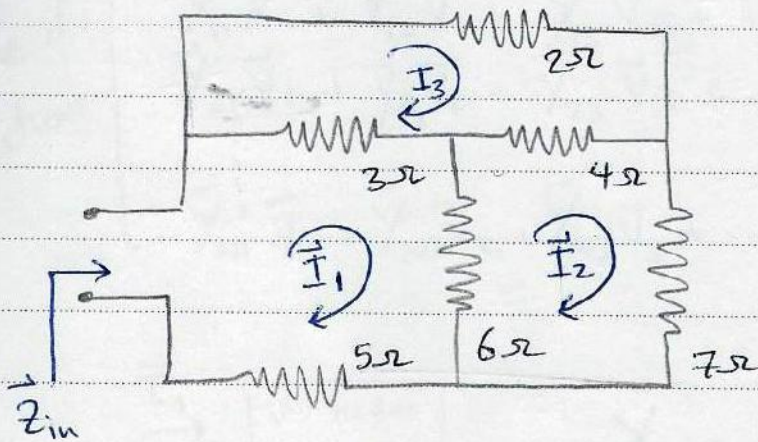 2Ω
I3
3Ω
4Ω
I1
I2
5Ω
6Ω
7Ω
Zin